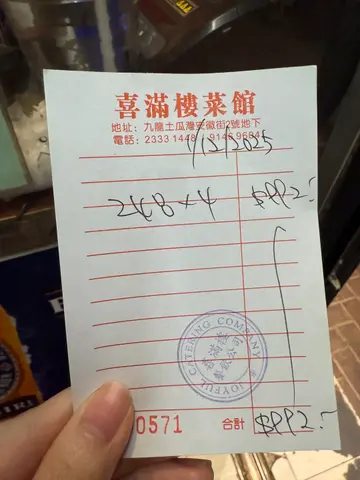 喜滿樓菜館
地址: 九龍土瓜灣安徽街2號地下
電話: 2333 1448
/12/2025
248 × 4 $992.-
CATERING COMPANY
JOYFUL
0571 合計 $992.-